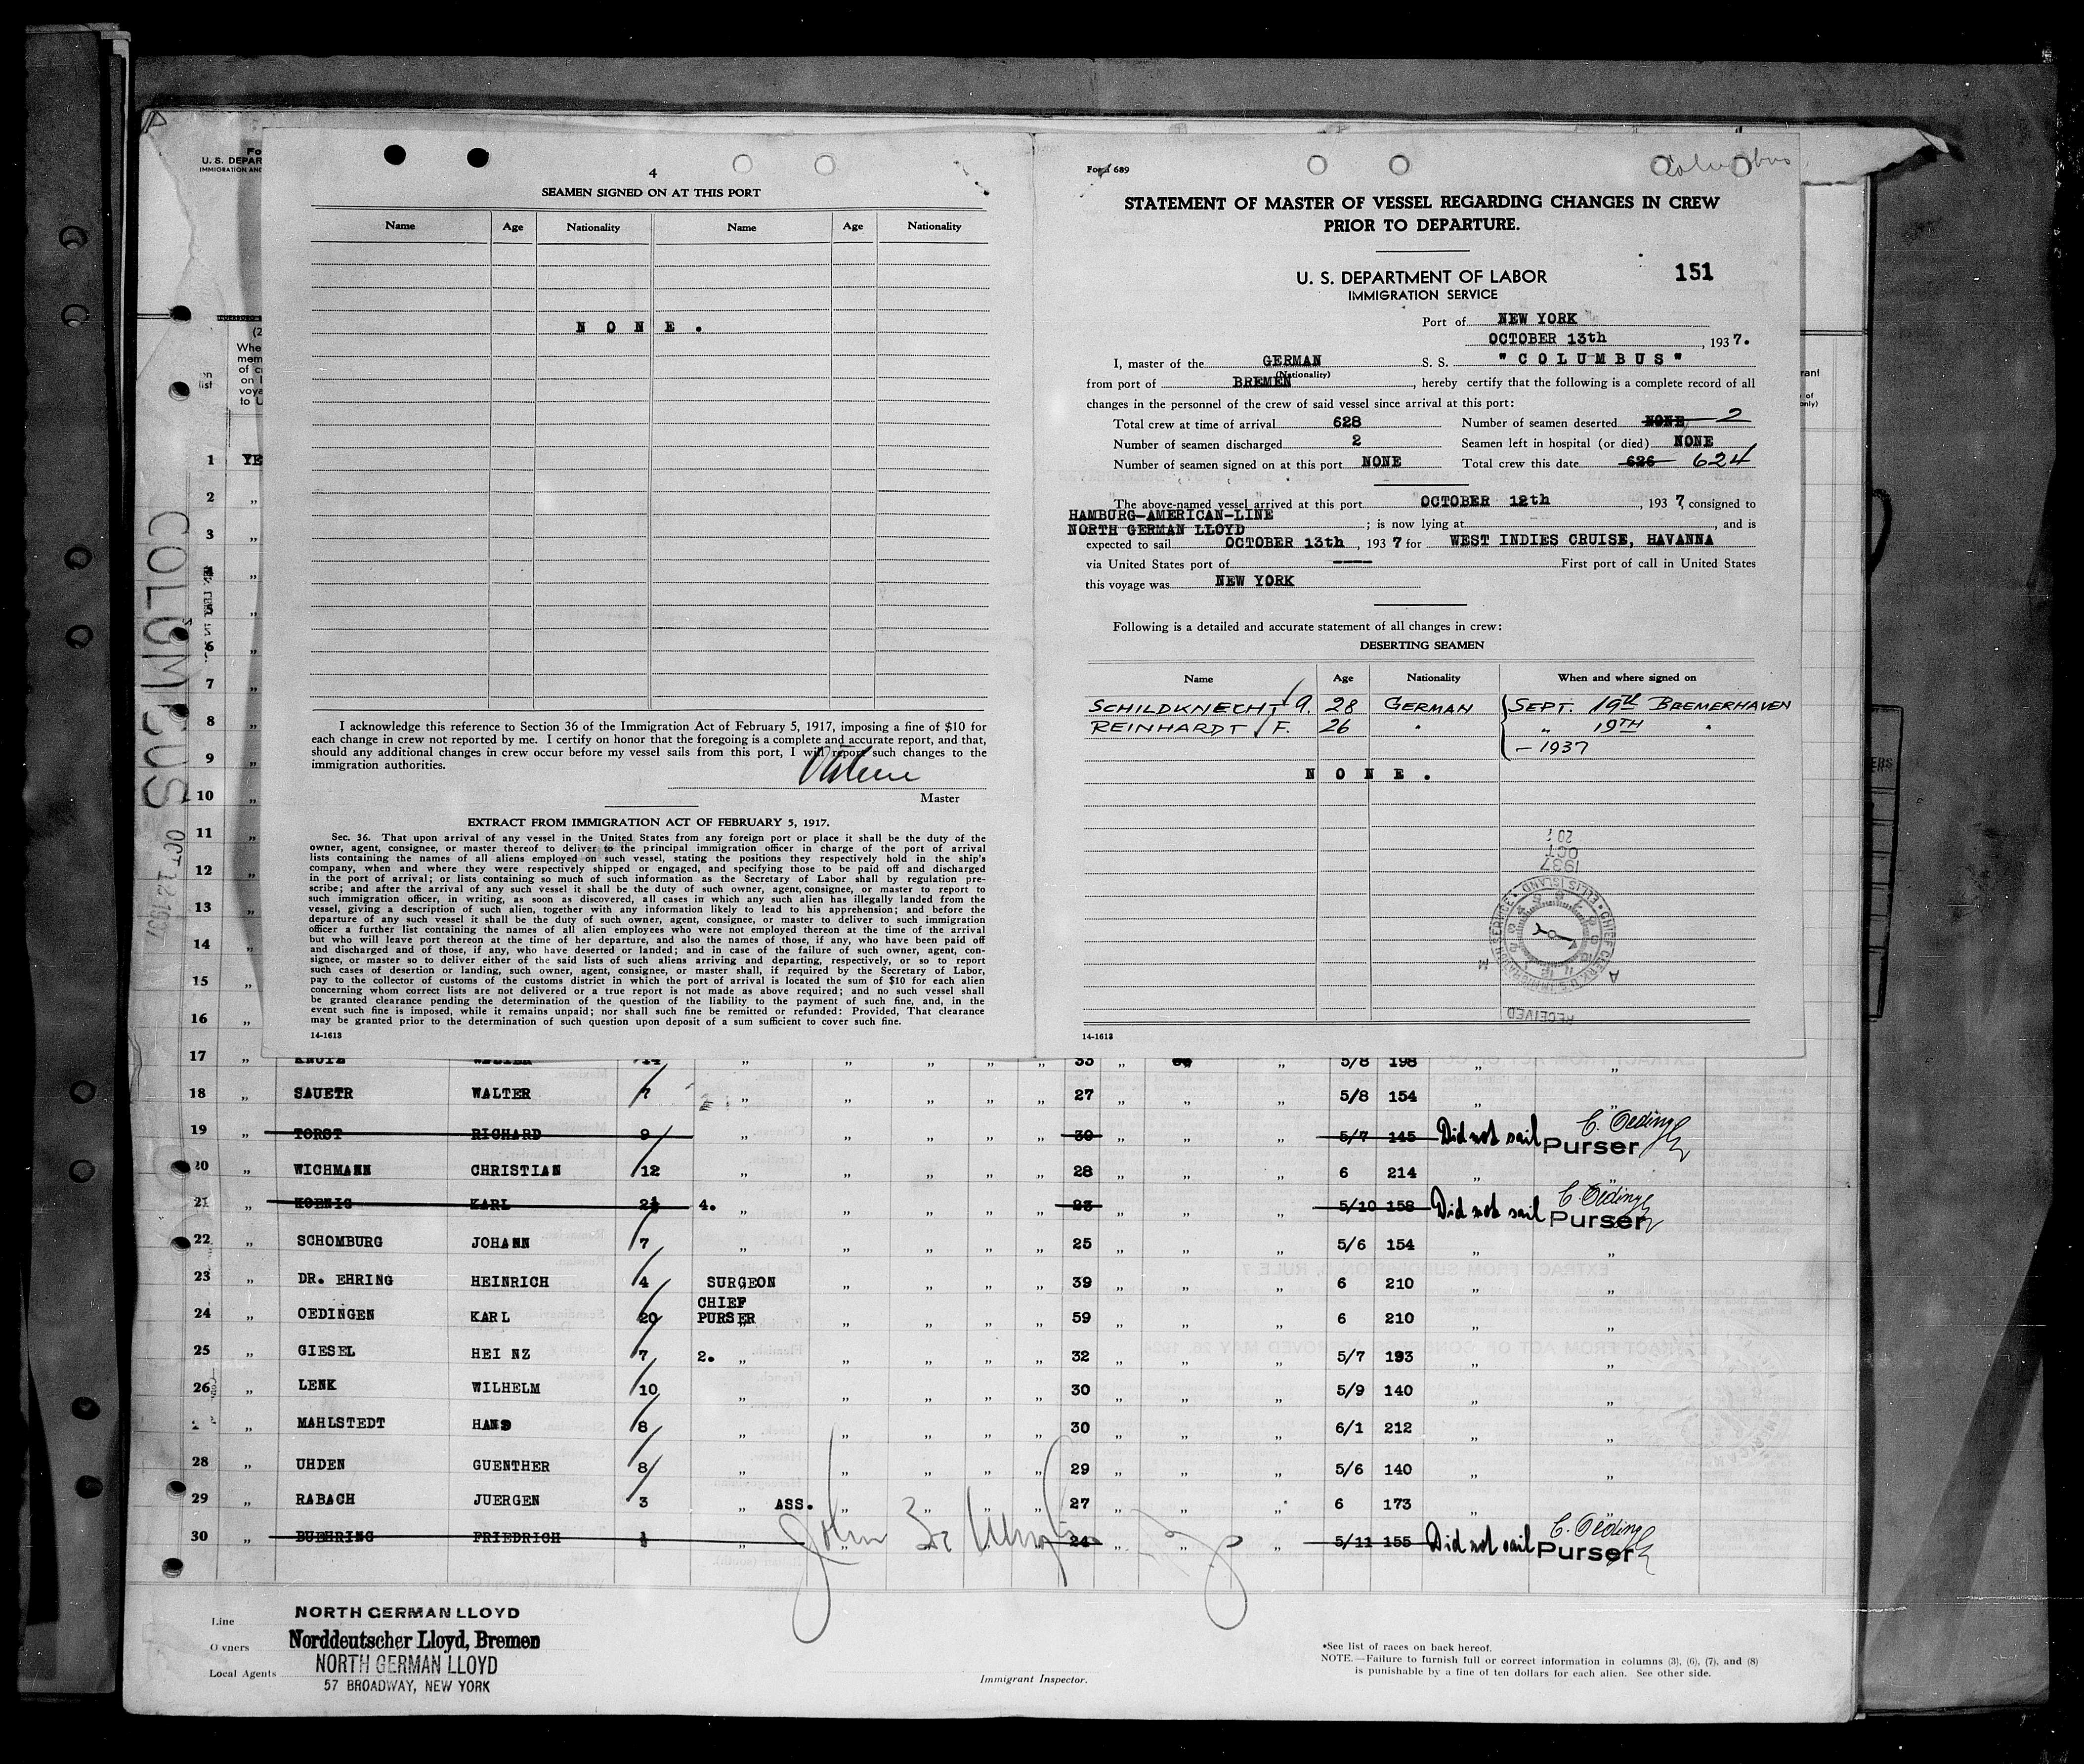 4
SEAMEN SIGNED ON AT THIS PORT
Name Age Nationality Name Age Nationality
N O N E .
I acknowledge this reference to Section 36 of the Immigration Act of February 5, 1917, imposing a fine of $10 for
each change in crew not reported by me. I certify on honor that the foregoing is a complete and accurate report, and that,
should any additional changes in crew occur before my vessel sails from this port, I will report such changes to the
immigration authorities.
Master
EXTRACT FROM IMMIGRATION ACT OF FEBRUARY 5, 1917.
Sec. 36. That upon arrival of any vessel in the United States from any foreign port or place it shall be the duty of the
owner, agent, consignee, or master thereof to deliver to the principal immigration officer in charge of the port of arrival
lists containing the names of all aliens employed on such vessel, stating the positions they respectively hold in the ship's
company, when and where they were respectively shipped or engaged, and specifying those to be paid off and discharged
in the port of arrival; or lists containing so much of such information as the Secretary of Labor shall by regulation pre-
scribe; and after the arrival of any such vessel it shall be the duty of such owner, agent, consignee, or master to report to
such immigration officer, in writing, as soon as discovered, all cases in which any such alien has illegally landed from the
vessel, giving a description of such alien, together with any information likely to lead to his apprehension; and before the
departure of any such vessel it shall be the duty of such owner, agent, consignee, or master to deliver to such immigration
officer a further list containing the names of all alien employees who were not employed thereon at the time of the arrival
but who will leave port thereon at the time of her departure, and also the names of those, if any, who have been paid off
and discharged and of those, if any, who have deserted or landed; and in case of the failure of such owner, agent, con-
signee, or master so to deliver either of the said lists of such aliens arriving and departing, respectively, or so to report
such cases of desertion or landing, such owner, agent, consignee, or master shall, if required by the Secretary of Labor,
pay to the collector of customs of the customs district in which the port of arrival is located the sum of $10 for each alien
concerning whom correct lists are not delivered or a true report is not made as above required; and no such vessel shall
be granted clearance pending the determination of the question of the liability to the payment of such fine, and, in the
event such fine is imposed, while it remains unpaid; nor shall such fine be remitted or refunded: Provided, That clearance
may be granted prior to the determination of such question upon deposit of a sum sufficient to cover such fine.
14-1613
Form 689
Columbus
STATEMENT OF MASTER OF VESSEL REGARDING CHANGES IN CREW
PRIOR TO DEPARTURE.
U. S. DEPARTMENT OF LABOR 151
IMMIGRATION SERVICE
Port of NEW YORK
OCTOBER 13th, 1937.
I, master of the GERMAN S. S. "COLUMBUS"
(Nationality)
from port of BREMEN, hereby certify that the following is a complete record of all
changes in the personnel of the crew of said vessel since arrival at this port:
Total crew at time of arrival 628 Number of seamen deserted NONE 2
Number of seamen discharged 2 Seamen left in hospital (or died) NONE
Number of seamen signed on at this port NONE Total crew this date 626 624
The above-named vessel arrived at this port OCTOBER 12th, 1937, consigned to
HAMBURG-AMERICAN-LINE
NORTH GERMAN LLOYD ; is now lying at , and is
expected to sail OCTOBER 13th, 1937 for WEST INDIES CRUISE, HAVANNA
via United States port of ---- First port of call in United States
this voyage was NEW YORK
Following is a detailed and accurate statement of all changes in crew:
DESERTING SEAMEN
Name Age Nationality When and where signed on
SCHILDKNECHT A. 28 GERMAN SEPT. 19th BREMERHAVEN
REINHARDT F. 26 " " 19TH "
- 1937
N O N E .
1937
OCT
20
CHIEF CLERK U.S. IMMIGRATION SERVICE • ELLIS ISLAND •
A M
RECEIVED
14-1613
U. S. DEPAR
IMMIGRATION AND
COLUMBUS
OCT 12 1937
1 YE
2 "
3 "
4 "
5 "
6 "
7 "
8 "
9 "
10 "
11 "
12 "
13 "
14 "
15 "
16 "
17 " 14 " " " " " 33 " " 5/8 198 " "
18 " SAUETR WALTER 7 " " " " " 27 " " " 5/8 154 " "
19 " TORST RICHARD 9 " " " " " 30 " " " 5/7 145 Did not sail C. Oeding Purser
20 " WICHMANN CHRISTIAN 12 " " " " " 28 " " " 6 214 "
21 " KOENIG KARL 4. " " " " " 23 " " " 5/10 158 Did not sail C. Oeding Purser
22 " SCHOMBURG JOHANN 7 " " " " " 25 " " " 5/6 154 " "
23 " DR. EHRING HEINRICH 4 SURGEON " " " " 39 " " " 6 210 " "
24 " OEDINGEN KARL 20 CHIEF PURSER " " " " 59 " " " 6 210 " "
25 " GIESEL HEINZ 7 2. " " " " " 32 " " " 5/7 193 " "
26 " LENK WILHELM 10 " " " " " 30 " " " 5/9 140 " "
" MAHLSTEDT HANS 8 " " " " " 30 " " " 6/1 212 " "
28 " UHDEN GUENTHER 8 " " " " " 29 " " " 5/6 140 " "
29 " RABACH JUERGEN 3 " ASS. " " " " 27 " " " 6 173 " "
30 " BUEHRING FRIEDRICH " " " " " 24 " " " 5/11 155 Did not sail C. Oeding Purser
Line NORTH GERMAN LLOYD
Owners Norddeutscher Lloyd, Bremen
Local Agents NORTH GERMAN LLOYD
57 BROADWAY, NEW YORK
Immigrant Inspector.
*See list of races on back hereof.
NOTE.—Failure to furnish full or correct information in columns (3), (6), (7), and (8)
is punishable by a fine of ten dollars for each alien. See other side.